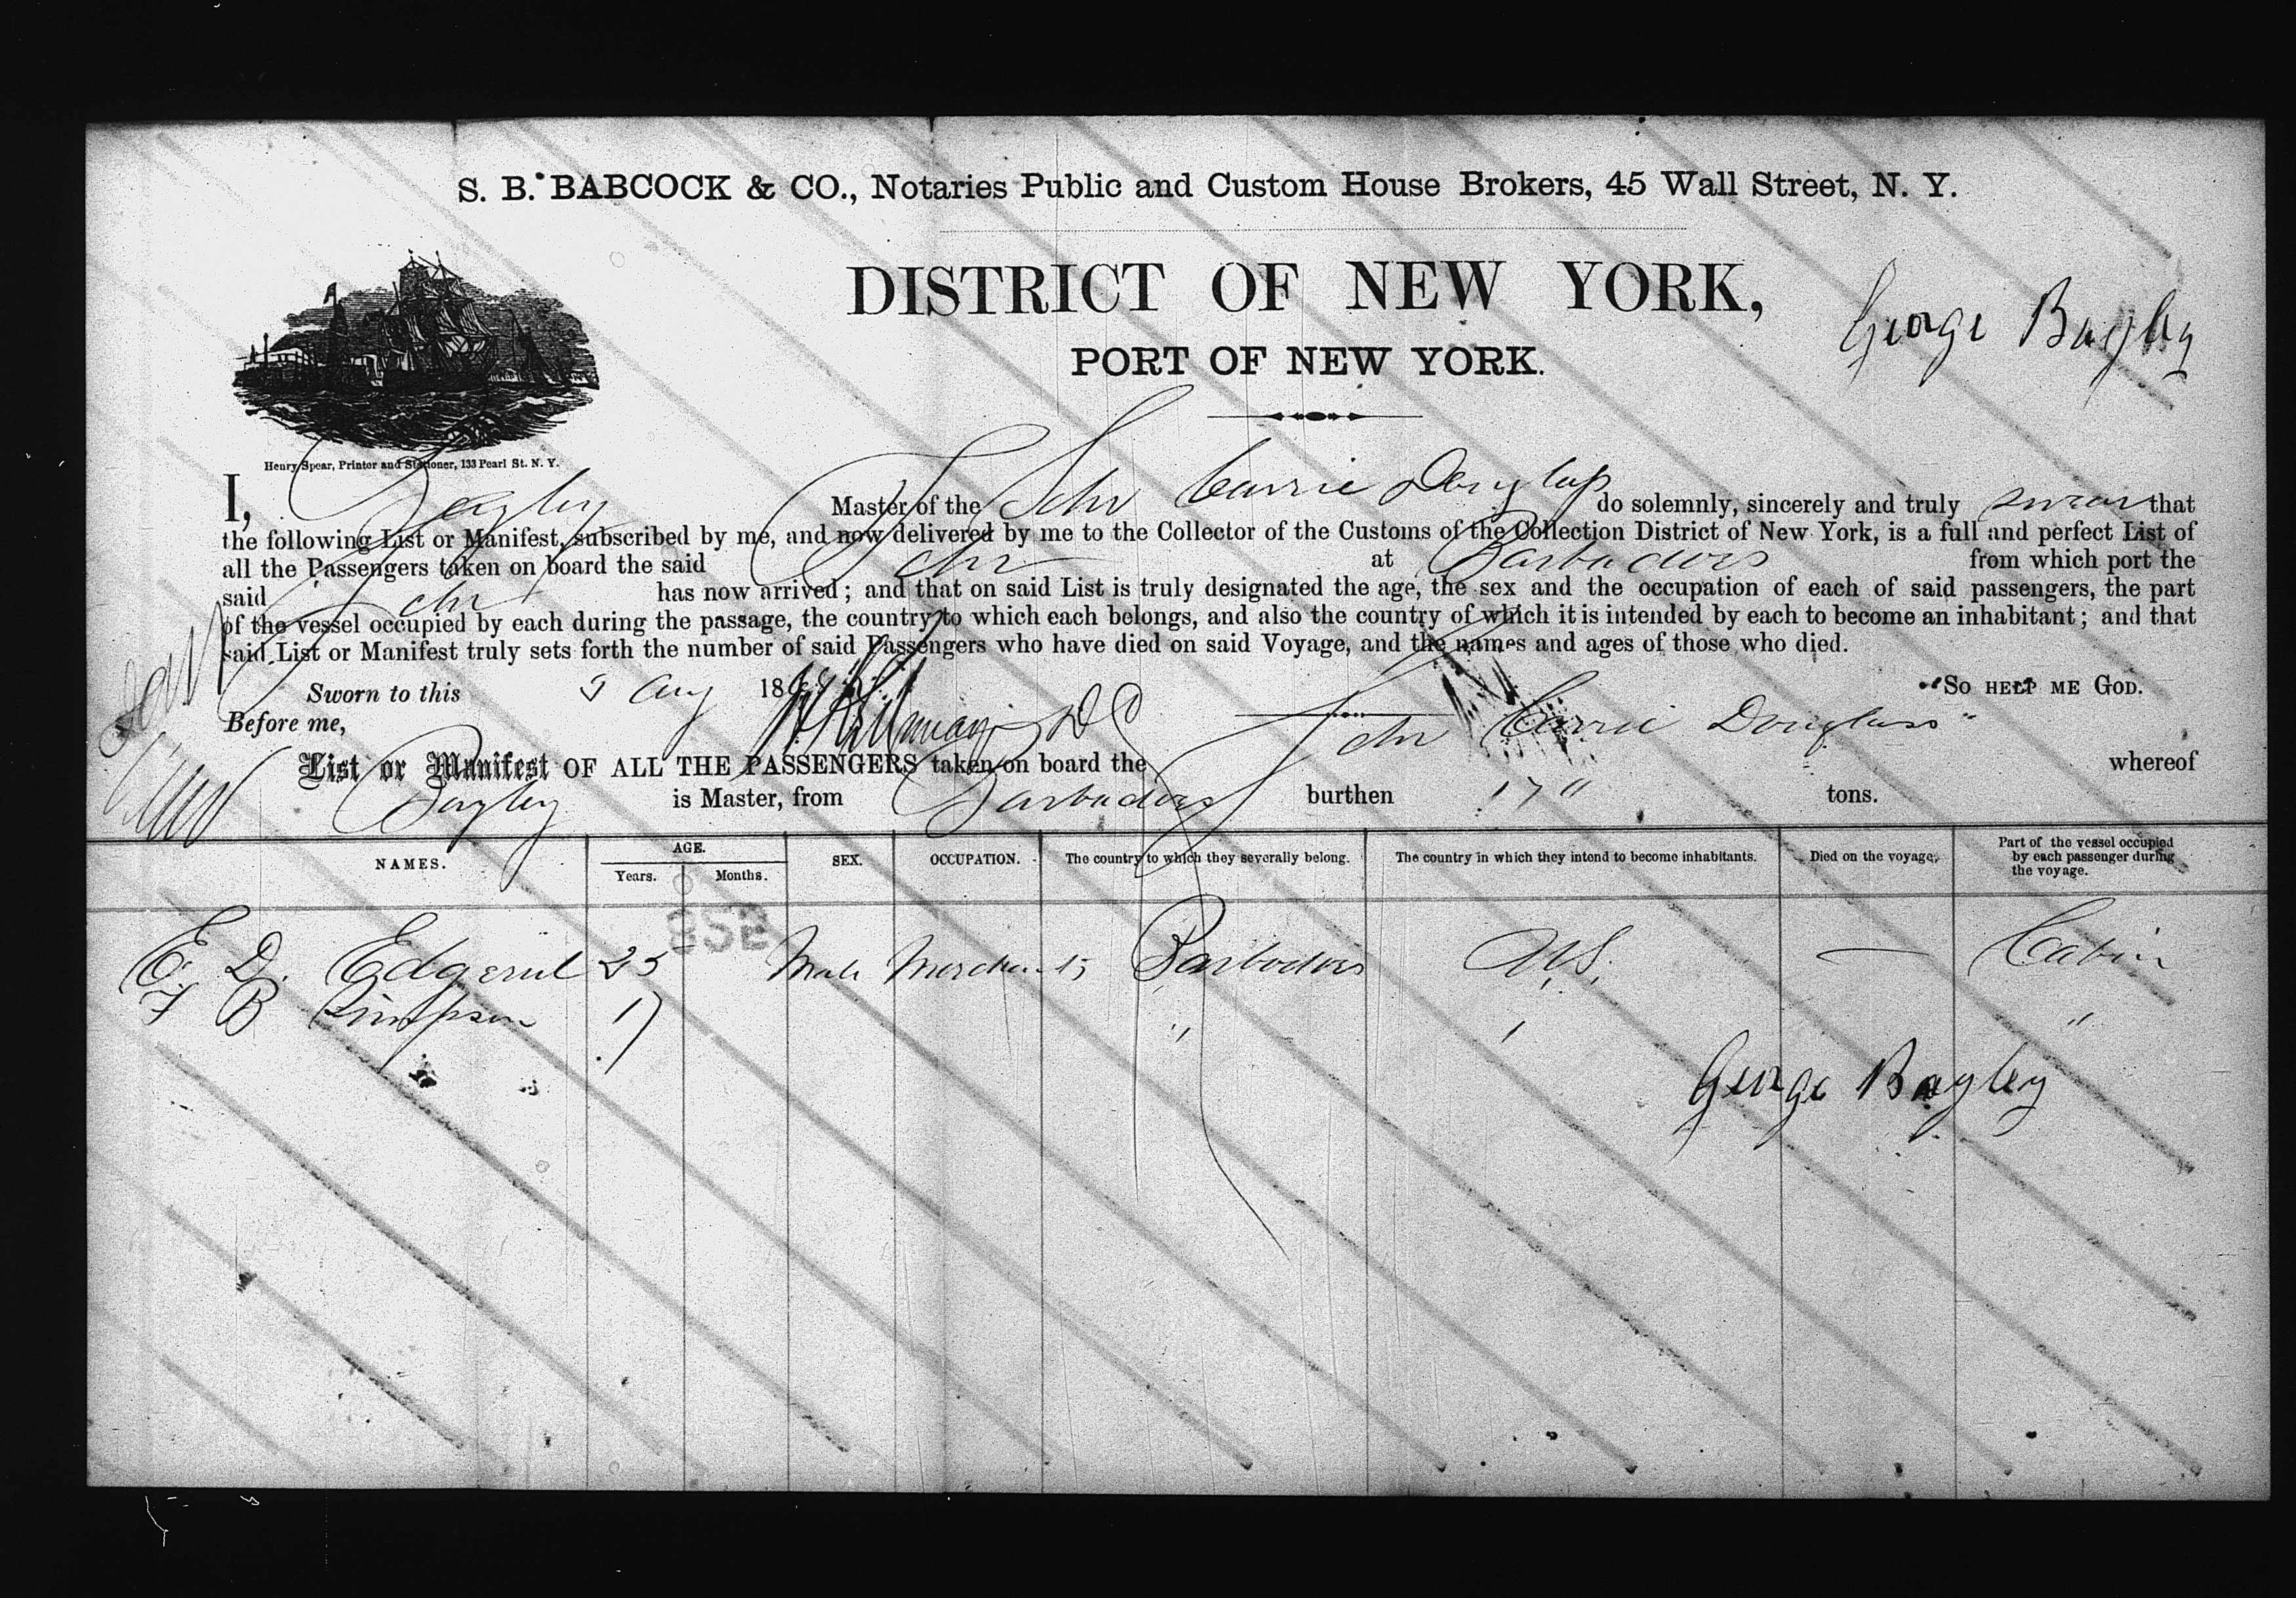 S. B. BABCOCK & CO., Notaries Public and Custom House Brokers, 45 Wall Street, N. Y.
DISTRICT OF NEW YORK,
George Bagley
PORT OF NEW YORK.
Henry Spear, Printer and Stationer, 133 Pearl St. N. Y.
I, Bagley Master of the Schr Carrie Douglass do solemnly, sincerely and truly swear that
the following List or Manifest, subscribed by me, and now delivered by me to the Collector of the Customs of the Collection District of New York, is a full and perfect List of
all the Passengers taken on board the said Schr at Barbadoes from which port the
said Schr has now arrived; and that on said List is truly designated the age, the sex and the occupation of each of said passengers, the part
of the vessel occupied by each during the passage, the country to which each belongs, and also the country of which it is intended by each to become an inhabitant; and that
said List or Manifest truly sets forth the number of said Passengers who have died on said Voyage, and the names and ages of those who died.
Sworn to this 3 Aug 186 So HELP ME GOD.
Before me,
List or Manifest OF ALL THE PASSENGERS taken on board the Schr Carrie Douglass" whereof
Bagley is Master, from Barbadoes burthen tons.
NAMES. AGE. Years. Months. SEX. OCCUPATION. The country to which they severally belong. The country in which they intend to become inhabitants. Died on the voyage. Part of the vessel occupied by each passenger during the voyage.
SSB
E. D. 25 Male Barbadoes U.S. — Cabin
B Simpson 17 " " "
George Bagley